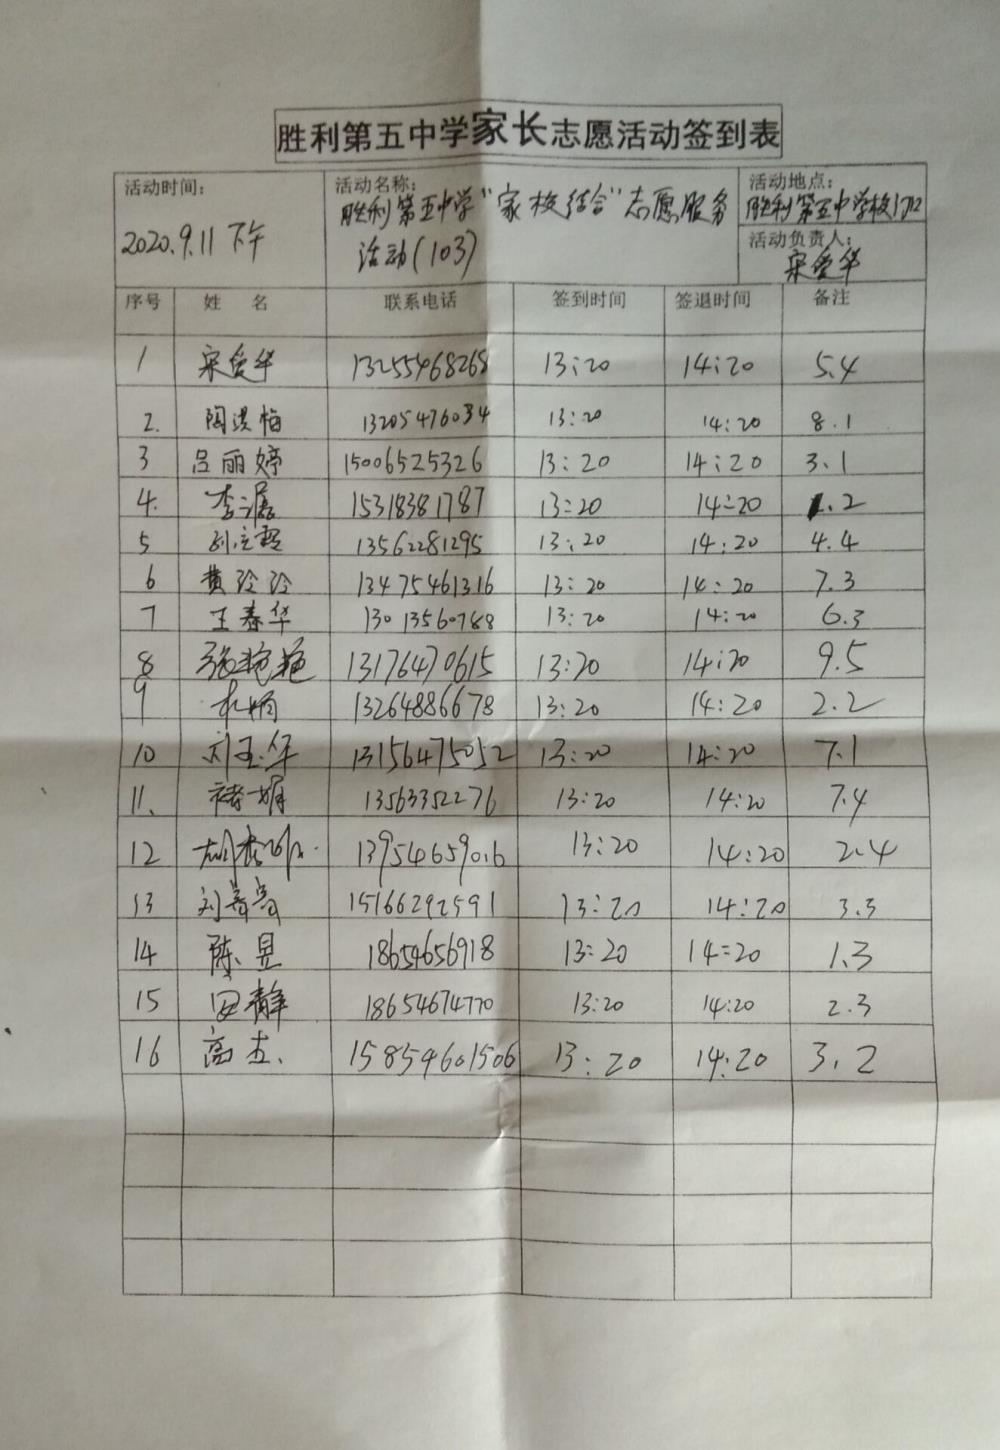 胜利第五中学家长志愿活动签到表
活动时间:
2020.9.11 下午
活动名称:
胜利第五中学"家校结合"志愿服务
活动(103)
活动地点:
胜利第五中学校门口
活动负责人:
宋爱华
序号 姓 名 联系电话 签到时间 签退时间 备注
1 宋爱华 13255468268 13:20 14:20 5.4
2. 陶洪梅 13205476034 13:20 14:20 8.1
3 吕丽婷 15006525326 13:20 14:20 3.1
4. 李潺 15318381787 13:20 14:20 1.2
5 13562281295 13:20 14:20 4.4
6 黄玲玲 13475461316 13:20 14:20 7.3
7 王春华 13013560788 13:20 14:20 6.3
8 张艳艳 13176470615 13:20 14:20 9.5
9 13264886678 13:20 14:20 2.2
10 刘玉华 13156475052 13:20 14:20 7.1
11. 褚娟 13563352276 13:20 14:20 7.4
12 13954659016 13:20 14:20 2.4
13 15166292591 13:20 14:20 3.3
14 陈昱 18654656918 13:20 14:20 1.3
15 田静 18654674770 13:20 14:20 2.3
16 高杰. 15854601506 13:20 14:20 3.2